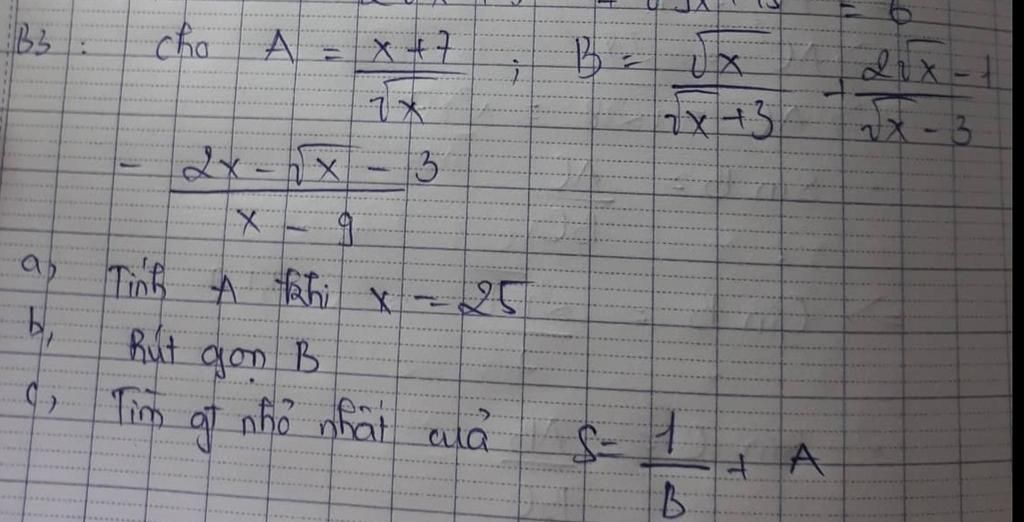 = 6
B3 : cho A = x + 7 / √x ; B = √x / √x + 3 + 2√x - 1 / √x - 3
- 2x - √x - 3 / x - 9
a, Tính A khi x = 25
b, Rút gọn B
c, Tìm gt nhỏ nhất của S = 1 / B + A